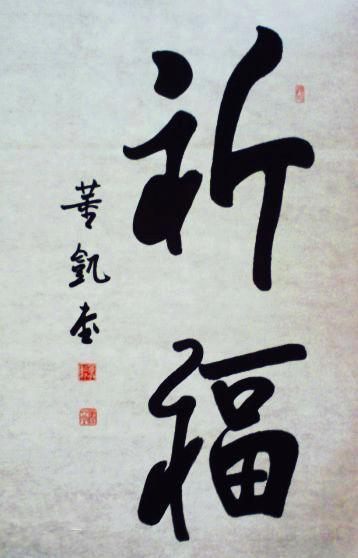 祈福
董凱書